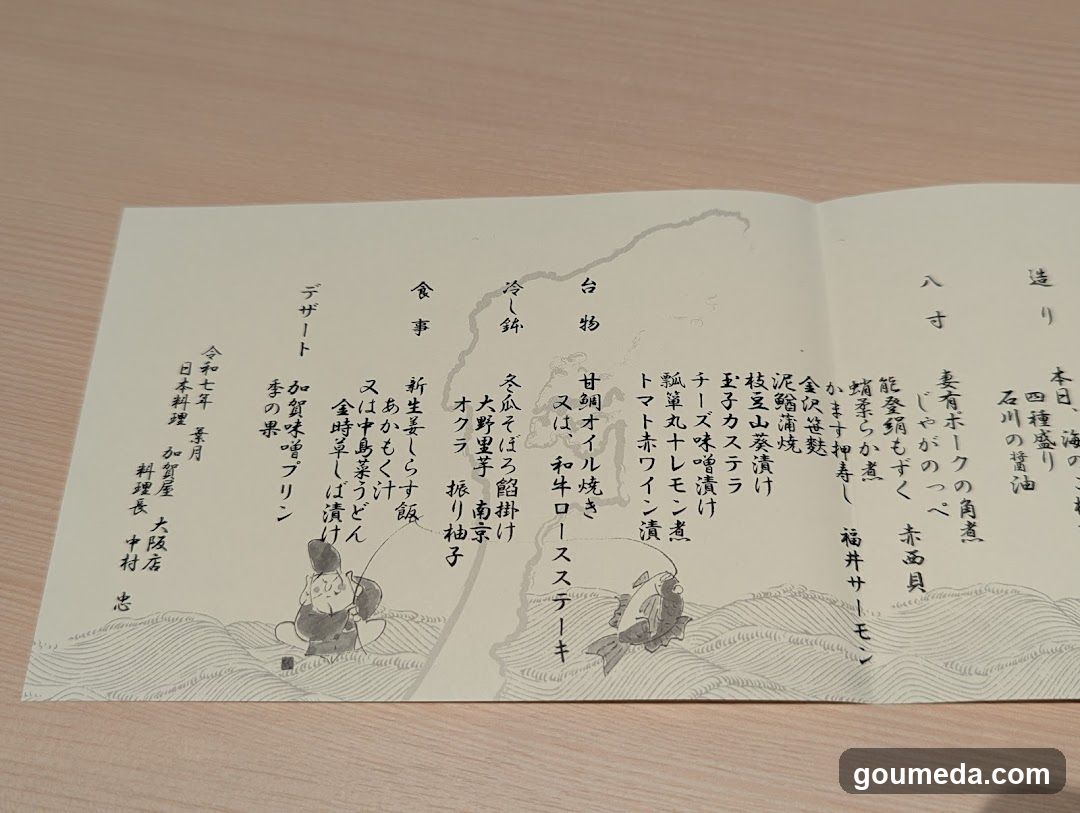 造り
本日、海の
四種盛り
石川の醤油
八寸
妻有ポークの角煮
じゃがのっぺ
能登絹もずく 赤西貝
蛸柔らか煮
かます押寿し 福井サーモン
金沢笹麩
泥鰌蒲焼
枝豆山葵漬け
玉子カステラ
チーズ味噌漬け
瓢箪丸十レモン煮
トマト赤ワイン漬
台物
甘鯛オイル焼き
又は、和牛ロースステーキ
冷し鉢
冬瓜そぼろ餡掛け
大野里芋 南京
オクラ 振り柚子
食事
新生姜しらす飯
あかもく汁
又は中島菜うどん
金時草しば漬け
デザート
加賀味噌プリン
季の果
令和七年 葉月
日本料理 加賀屋 大阪店
料理長 中村 忠
goumeda.com